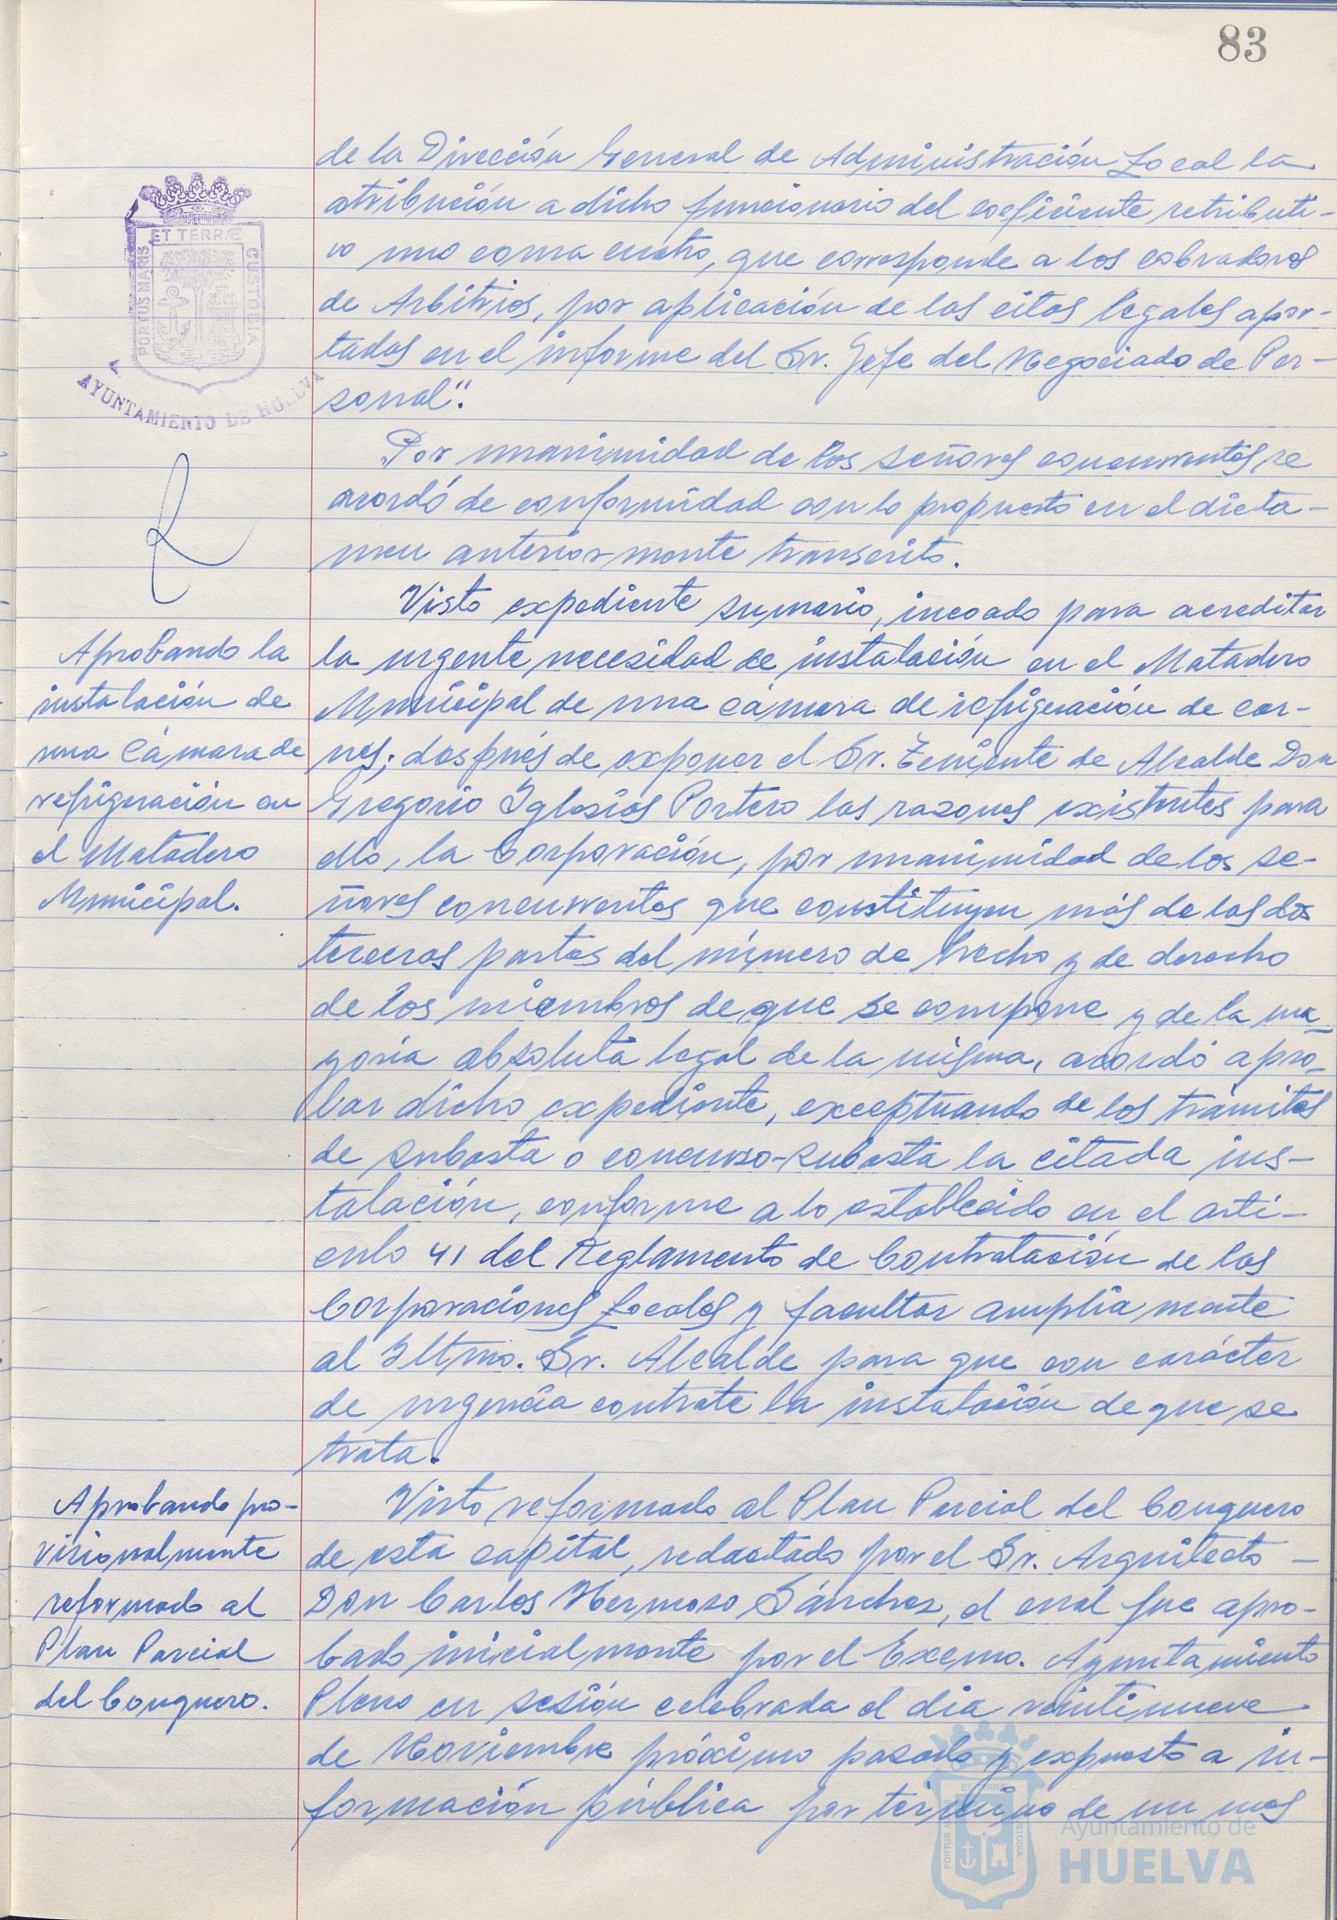 83
de la Dirección General de Administración Local la
atribución a dicho funcionario del coeficiente retributi-
vo uno coma cuatro, que corresponde a los cobradores
de Arbitrios, por aplicación de las citas legales apor-
tadas en el informe del Sr. Jefe del Negociado de Per-
sonal".
ET TERRÆ
PORTUS MARIS
CUSTODIA
AYUNTAMIENTO DE HUELVA
Por unanimidad de los señores concurrentes, se
acordó de conformidad con lo propuesto en el dicta-
men anteriormente transcrito.
Aprobando la
instalación de
una Cámara de
refrigeración en
el Matadero
Municipal.
Visto expediente sumario, incoado para acreditar
la urgente necesidad de instalación en el Matadero
Municipal de una cámara de refrigeración de car-
nes; después de exponer el Sr. Teniente de Alcalde Don
Gregorio Iglesias Portero las razones existentes para
ello, la Corporación, por unanimidad de los se-
ñores concurrentes que constituyen más de las dos
terceras partes del número de hecho y de derecho
de los miembros de que se compone y de la ma-
yoría absoluta legal de la misma, acordó apro-
bar dicho expediente, exceptuando de los trámites
de subasta o concurso-subasta la citada ins-
talación, conforme a lo establecido en el artí-
culo 41 del Reglamento de Contratación de las
Corporaciones Locales y facultar ampliamente
al Iltmo. Sr. Alcalde para que con carácter
de urgencia contrate la instalación de que se
trata.
Aprobando pro-
visionalmente
reformado al
Plan Parcial
del Conquero.
Visto reformado al Plan Parcial del Conquero
de esta capital, redactado por el Sr. Arquitecto -
Don Carlos Hermoso Sánchez, el cual fue apro-
bado inicialmente por el Excmo. Ayuntamiento
Pleno en sesión celebrada el día veintinueve
de Noviembre próximo pasado y expuesto a in-
formación pública por término de un mes
Ayuntamiento de
HUELVA